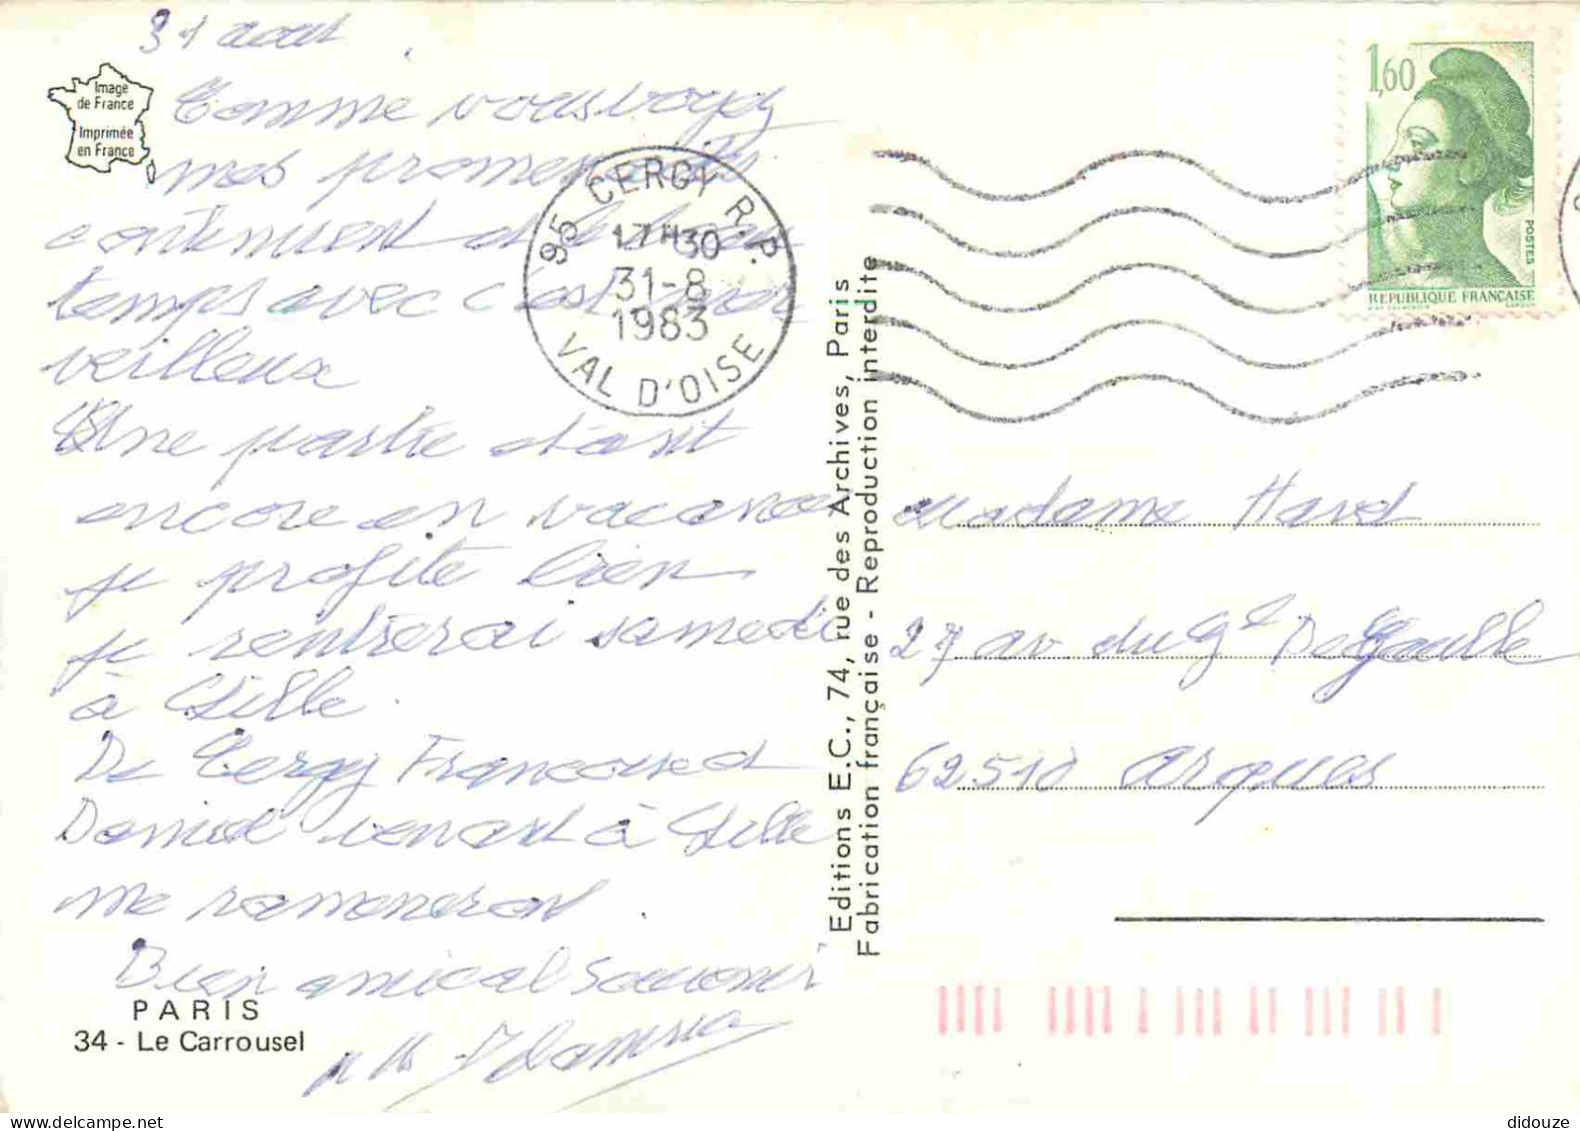 31 août
Image
de France
Imprimée
en France
Comme vous voyez
mes promenades
continuent et le beau
temps avec c'est mer
veilleux
Une partie étant
encore en vacances
je profite bien
je rentrerai samedi
à Lille.
De Cergy Francoise et
Daniel venant à Lille
me ramèneront.
Bien amical souvenir
PARIS
34 - Le Carrousel
95 CERGY R.P.
17H30
31-8
1983
VAL D'OISE
Editions E.C., 74, rue des Archives, Paris
Fabrication française - Reproduction interdite
1,60
POSTES
REPUBLIQUE FRANÇAISE
Madame Havet
27 av du Gl De Gaulle
62510 Arques
didouze